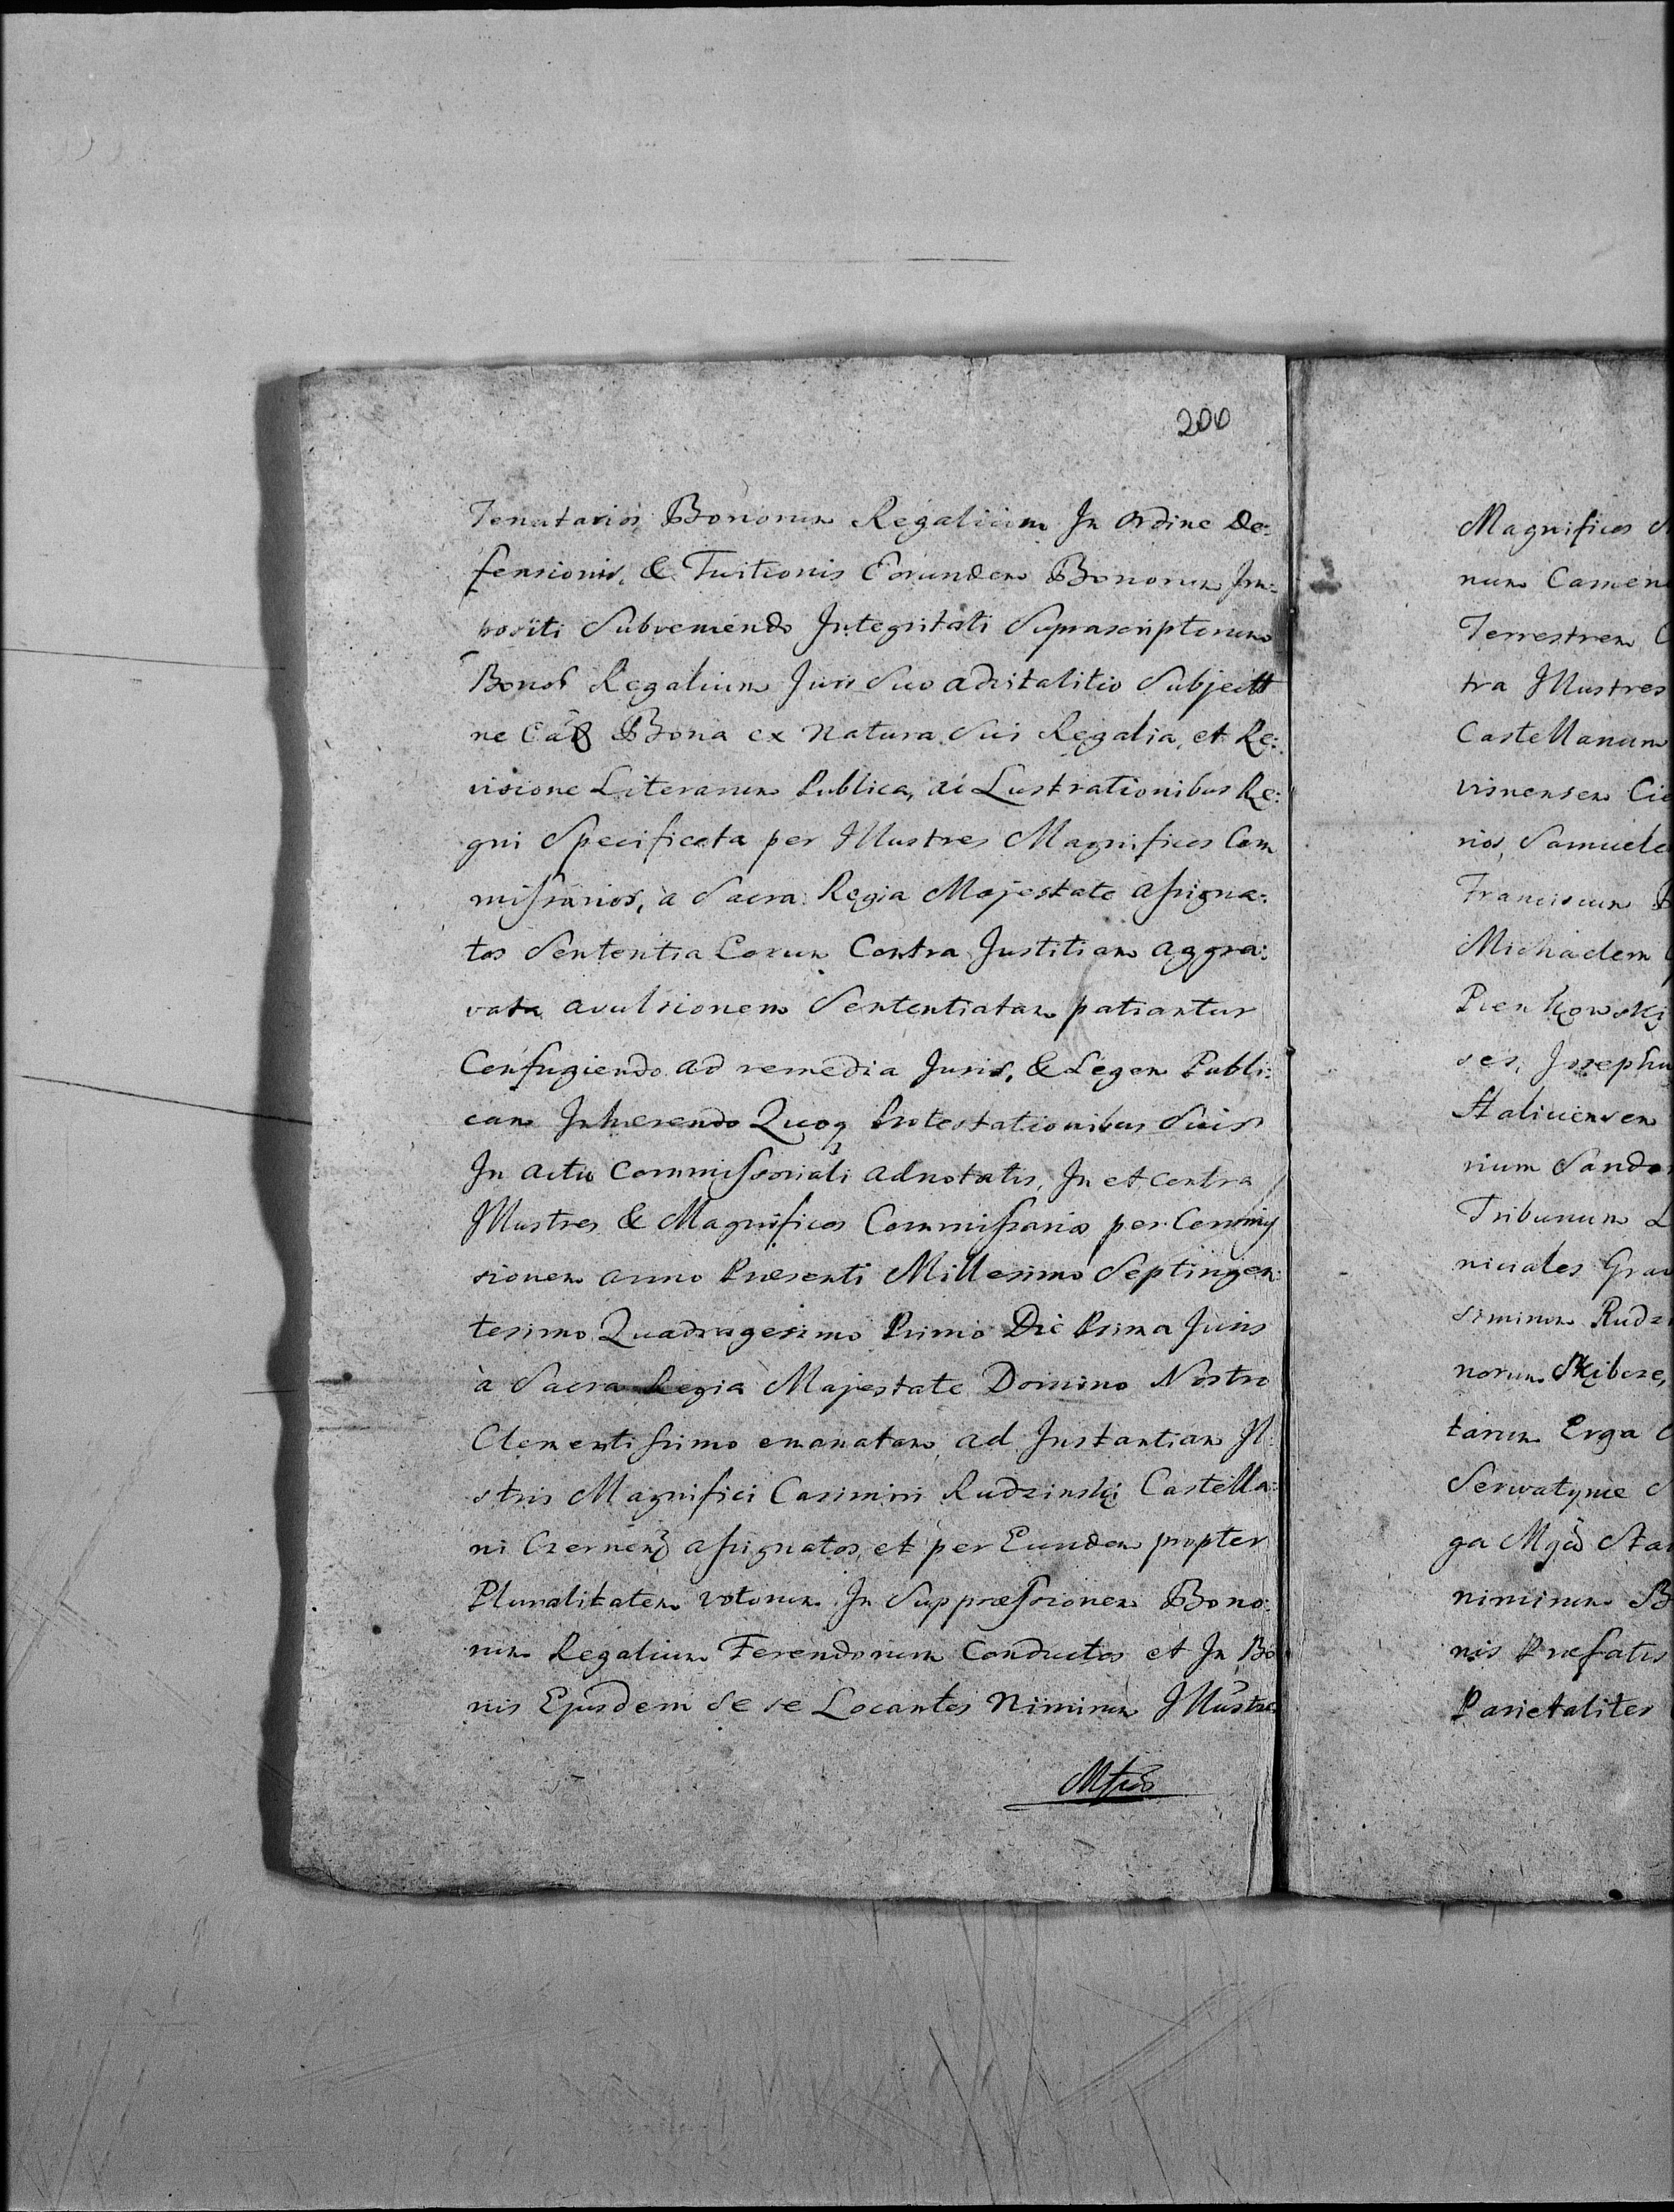 200
Tenutarios Bonorum Regalium In Ordine De:
fensionis, & Tuitionis Eorundem Bonorum Im:
positi Subveniendo Integritati Suprascriptorum
Regalium Juri Suo advitalitio
ne Bona ex Natura Sui Regalia, et Re:
visione Literarum Publica, ac Lustrationibus Re:
gni Specificata per Illustres Magnificos Com
missarios, à Sacra Regia Majestate assigna:
tos Sententia Eorum Contra Justitiam aggra:
vata avulsionem Sententiatam patiantur
Confugiendo ad remedia Juris, & Legem Publi:
cam Inhærendo Quoq Protestationibus Suis
In actu Commissoriali adnotatis, In et contra
Illustres & Magnificos Commissarios per Commis
sionem anno Præsenti Millesimo Septingen:
tesimo Quadragesimo Primo Die Prima Junis
à Sacra Regia Majestate Domino Nostro
Clementissimo emanatam, ad Instantiam Il:
stris Magnifici Casimiri Rudzinski Castella:
ni assignatos, et per Eundem propter
Pluralitatem votorum In Suppressionem Bono:
rum Regalium Ferendorum Conductos et In Bo
nis Ejusdem se se Locantes Nimirum Illustres
Magnificos
num Camen
Terrestrem
tra Illustres
Castellanum
visnensem Cie
rios, Samuele
Franciscum
Michaelem
Pienkowski
ses, Josephu
Haliciensem
rium Sando
Tribunum L
niciales Gra
siminum Rudzi
norum Skibice,
tarum Erga
Serwatynie
ga Sta
nimirum B
nis Præfatis
Parietaliter